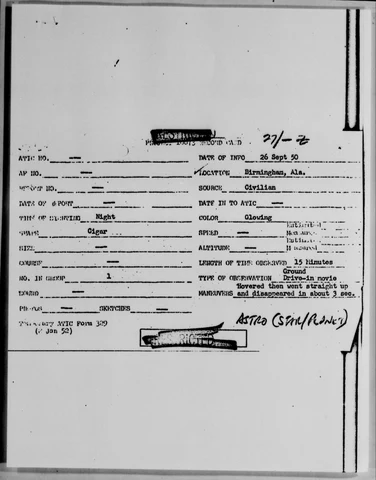 27/-Z
RECORD CARD
ATIC NO. — DATE OF INFO 26 Sept 50
AF NO. — LOCATION Birmingham, Ala.
REPORT NO. — SOURCE Civilian
DATE OF REPORT — DATE IN TO ATIC —
TIME OF SIGHTING Night COLOR Glowing
SHAPE Cigar SPEED —
SIZE — ALTITUDE —
COURSE — LENGTH OF TIME OBSERVED 15 Minutes
NO. IN GROUP 1 TYPE OF OBSERVATION Ground
Drive-in movie
SOUND — MANEUVERS Hovered then went straight up
and disappeared in about 3 sec.
PHOTOS — SKETCHES —
Temporary ATIC Form 329
(2 Jan 52)
ASTRO (STAR/PLANET)